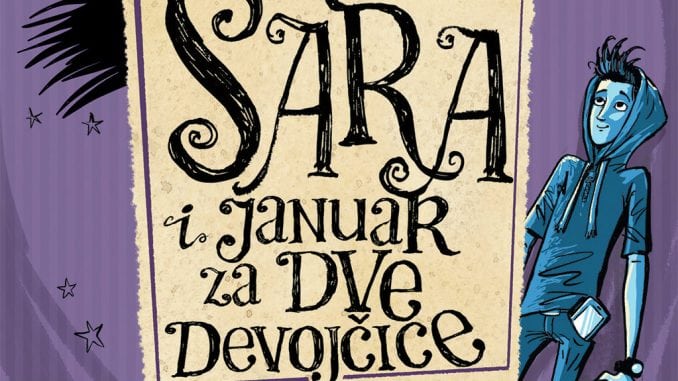 SARA
i JANUAR
za DVE
DEVOJČICE